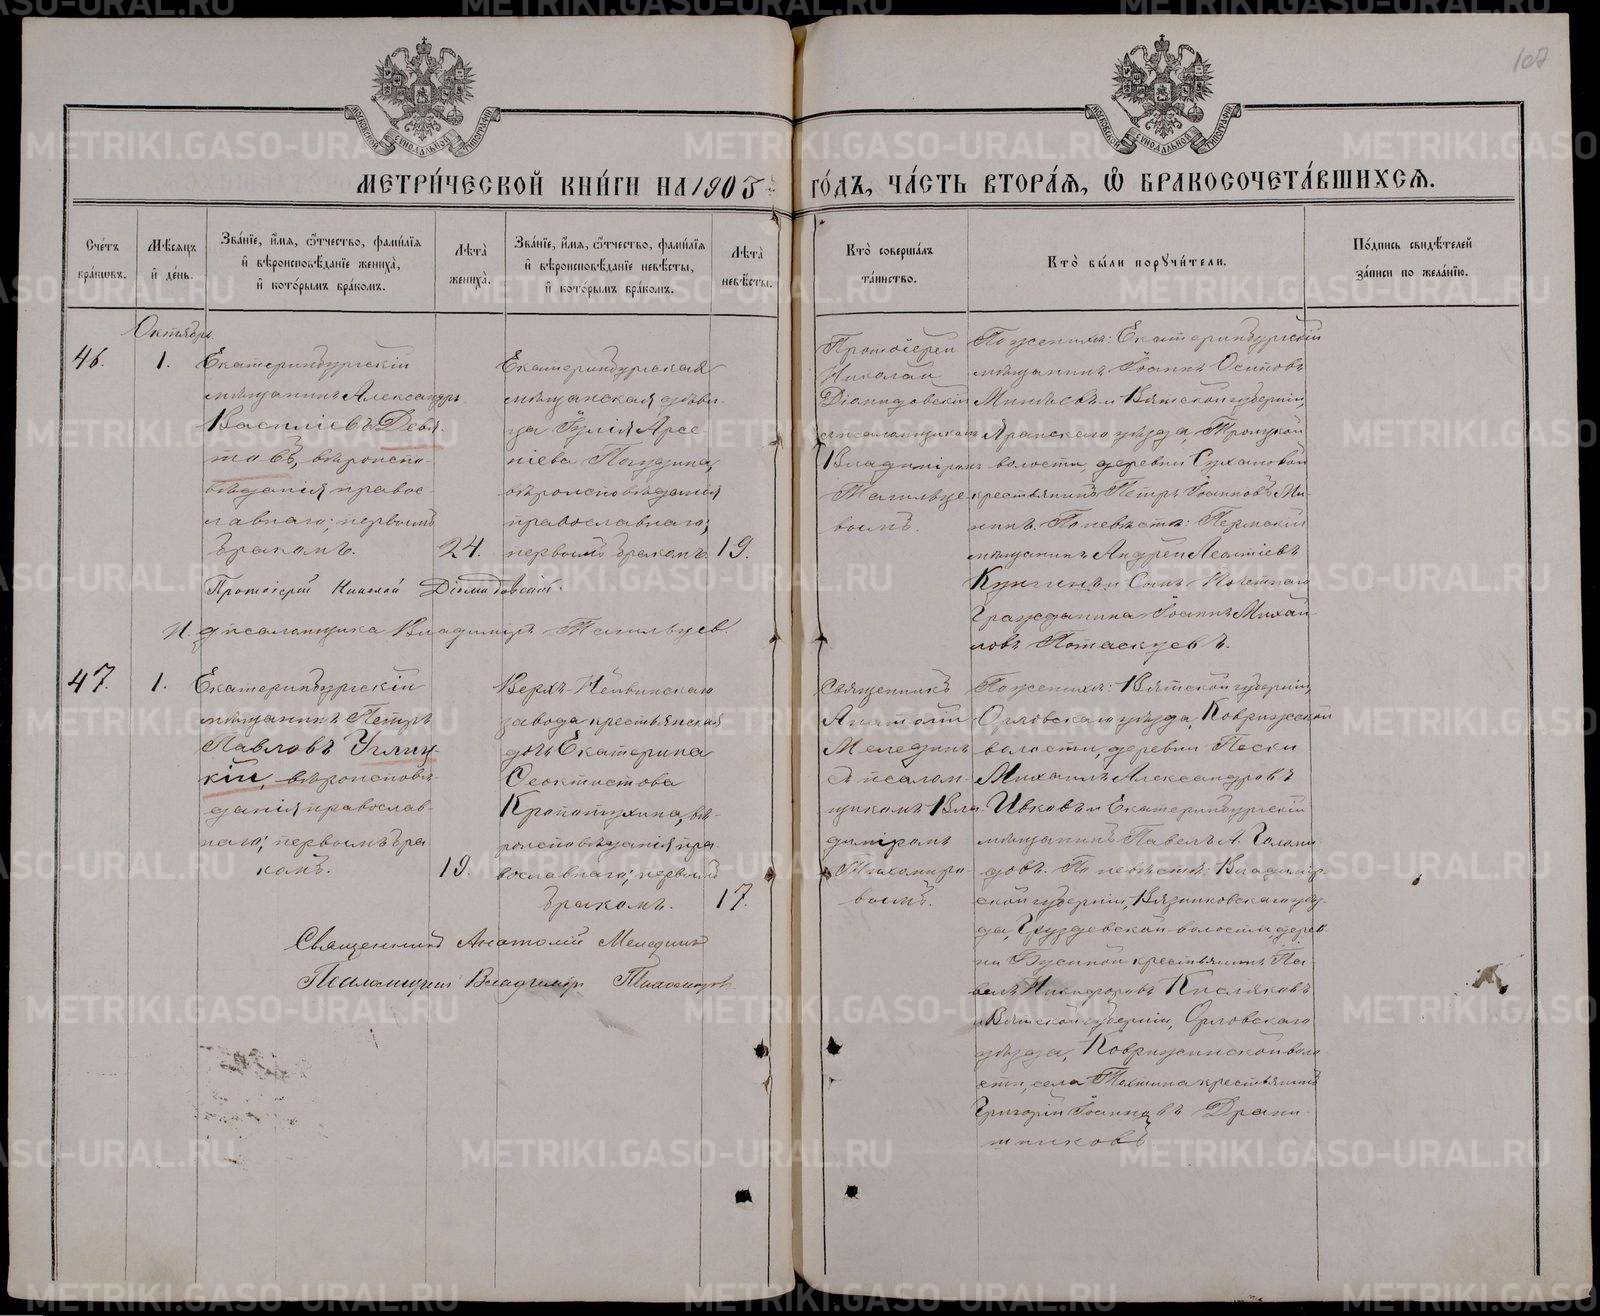 107
МОСКОВСКОЙ СѴНОДАЛЬНОЙ ТИПОГРАФІИ
МОСКОВСКОЙ СѴНОДАЛЬНОЙ ТИПОГРАФІИ
МЕТРИ́ЧЕСКОЙ КНИ́ГИ НА 1905 ГО́ДЪ, ЧА́СТЬ ВТОРА́Я, Ѿ БРАКОСОЧЕТА́ВШИХСЯ.
Сче́тъ бра́кωвъ.
Мѣ́сяцъ и҆ де́нь.
Зва́нїе, и҆́мя, ѻ҆́тчество, фами́лїя и҆ вѣроисповѣ́данїе жениха̀, и҆ кото́рымъ бра́комъ.
Лѣ́та жениха̀.
Зва́нїе, и҆́мя, ѻ҆́тчество, фами́лїя и҆ вѣроисповѣ́данїе невѣ́сты, и҆ кото́рымъ бра́комъ.
Лѣ́та невѣ́сты.
Кто̀ соверша́лъ та́инство.
Кто̀ бы́ли порꙋчи́тели.
По́дпись свидѣ́телей за́писи по жела́нїю.
Октябрь
46.
1.
Екатеринбургскій
мѣщанинъ Александръ
Василіевъ Девя-
товъ, вѣроиспо-
вѣданія правос-
лавнаго; первымъ
бракомъ.
24.
Екатеринбургская
мѣщанская дѣви-
ца Іулія Арсе-
ніева
вѣроисповѣданія
православнаго;
первымъ бракомъ.
19.
Протоіерей
Николай
Діомидовскій
съ псаломщикомъ
Владиміромъ
Тагильце-
вымъ.
По женихѣ: Екатеринбургскій
мѣщанинъ Іоаннъ Осиповъ
Минѣевъ и Вятской губерніи,
Яранскаго уѣзда, Троицкой
волости, деревни Сухановой
крестьянинъ Петръ Іоанновъ Ми-
нинъ. По невѣстѣ: Пермскій
мѣщанинъ Андрей Леонтіевъ
и Сынъ Почетнаго
Гражданина Іоаннъ Михай-
ловъ Потаскуевъ.
Протоіерей Николай Діомидовскій.
И. д. псаломщика Владиміръ Тагильцев.
47.
1.
Екатеринбургскій
мѣщанинъ Петръ
Павловъ Углиц-
кій, вѣроисповѣ-
данія православ-
наго; первымъ бра-
комъ.
19.
Верхъ-Нейвинскаго
завода крестьянская
дочь Екатерина
Ѳеоктистова
Кропотухина, вѣ-
роисповѣданія пра-
вославнаго; первымъ
бракомъ.
17.
Священникъ
Анатолій
Мелединъ
съ псалом-
щикомъ Вла-
диміромъ
Тихомиро-
вымъ.
По женихѣ: Вятской губерніи,
Орловскаго уѣзда, Ковринской
волости, деревни Пески
Михаилъ Александровъ
Ивковъ и Екатеринбургскій
мѣщанинъ Павелъ А.
По невѣстѣ: Владимір-
ской губерніи, Вязниковскаго уѣз-
да, Груздевской волости, дерев-
ни крестьянинъ Па-
велъ Никифоровъ Кисляковъ
и Вятской губерніи, Орловскаго
уѣзда, воло-
сти, села крестьянинъ
Григорій Іоанновъ Драни-
шниковъ
Священникъ Анатолій Мелединъ
Псаломщикъ Владимір Тихомиров